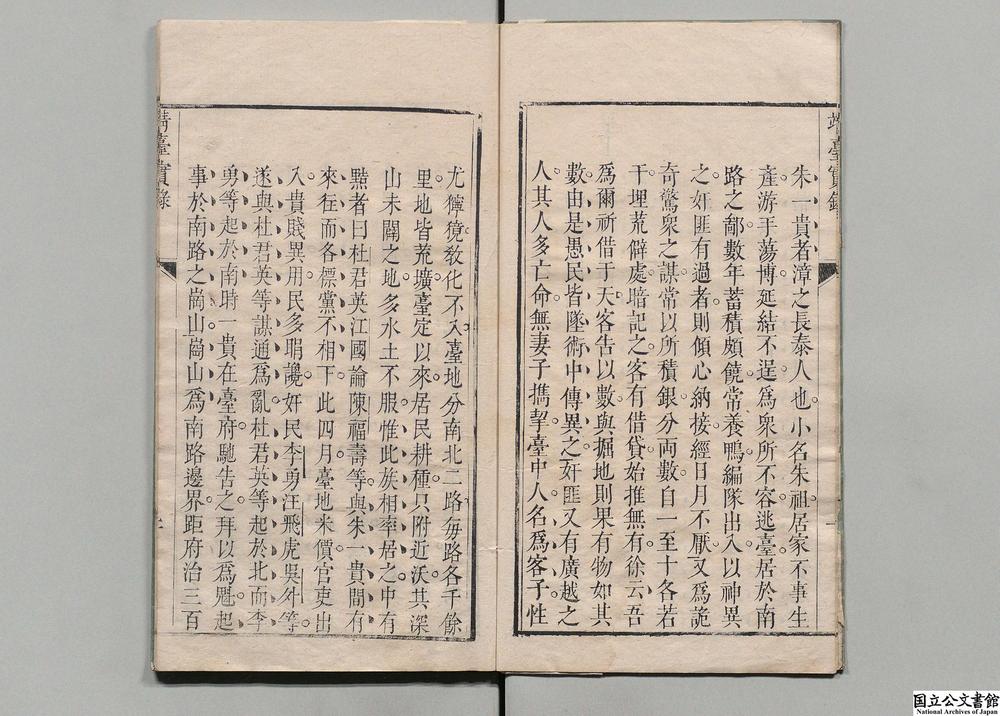 朱一貴者漳之長泰人也小名朱祖居家不事生
產游手蕩博延結不逞爲衆所不容逃臺居於南
路之鄰數年蓄積頗饒常養鴨編隊出入以神異
之奸匪有過者則傾心納接經日月不厭又爲詭
奇驚衆之謀常以所積銀分両數自一至十各若
干埋荒僻處暗記之客有借貸始推無有徐云吾
爲爾祈借于天客告以數與掘地則果有物如其
數由是愚民皆墜術中傳異之奸匪又有廣越之
人其人多亡命無妻子擕挈臺中人名爲客子性
尤獰獍敎化不入臺地分南北二路每路各千餘
里地皆荒壙臺定以來居民耕種只附近沃其深
山未闢之地多水土不服惟此族相率居之中有
黠者曰杜君英江國論陳福壽等與朱一貴間有
來徃而各標黨不相下此四月臺地米價官吏出
入貴賤異用民多謭讒奸民李勇汪飛虎吳外等
遂與杜君英等謀通爲亂杜君英等起於北而李
勇等起於南時一貴在臺府馳告之拜以爲魁起
事於南路之崗山崗山爲南路邊界距府治三百
靖臺實錄
靖臺實錄
国立公文書館
National Archives of Japan